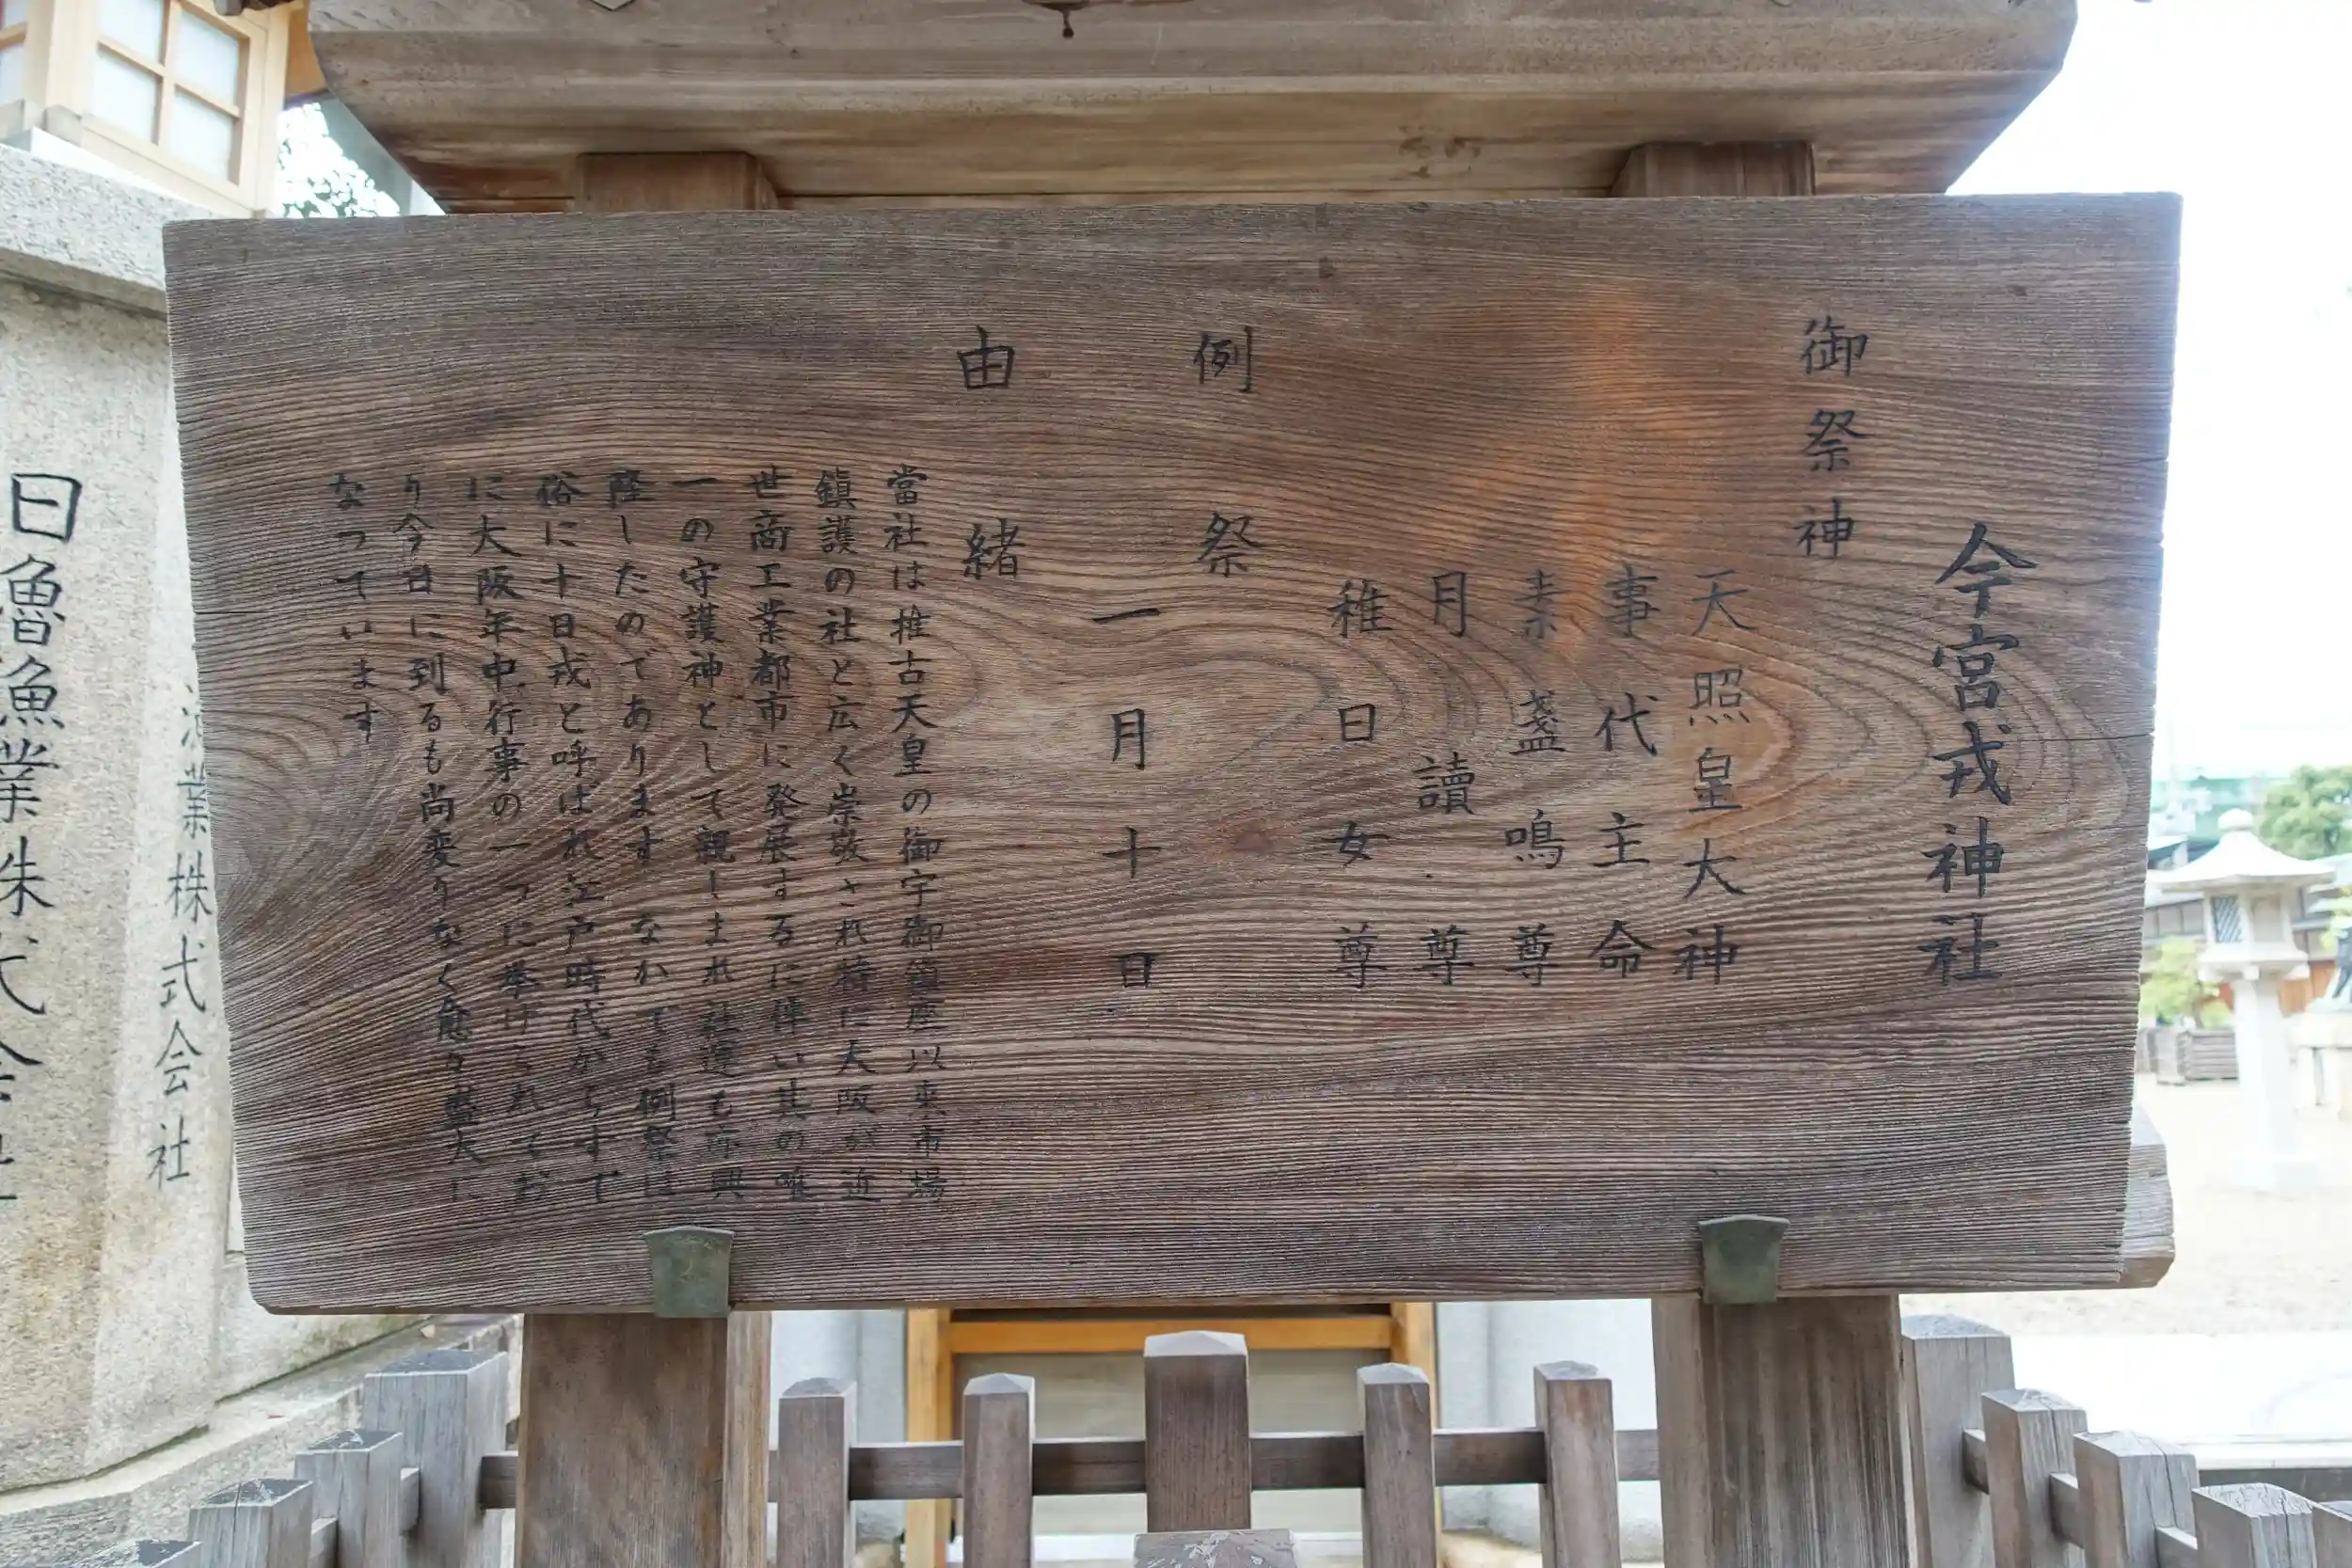 今宮戎神社
御祭神
天照皇大神
事代主命
素盞嗚尊
月讀尊
稚日女尊
例祭
一月十日
由緒
當社は推古天皇の御宇御鎮座以来市場
鎮護の社と広く崇敬され特に大阪が近
世商工業都市に発展するに伴い其の唯
一の守護神として親しまれ社運も亦興
隆したのであります なかでも例祭は
俗に十日戎と呼ばれ江戸時代からすで
に大阪年中行事の一つに挙げられてお
り今日に到るも尚変りなく愈々盛大に
なつています
業株式会社
日魯漁業株式会社